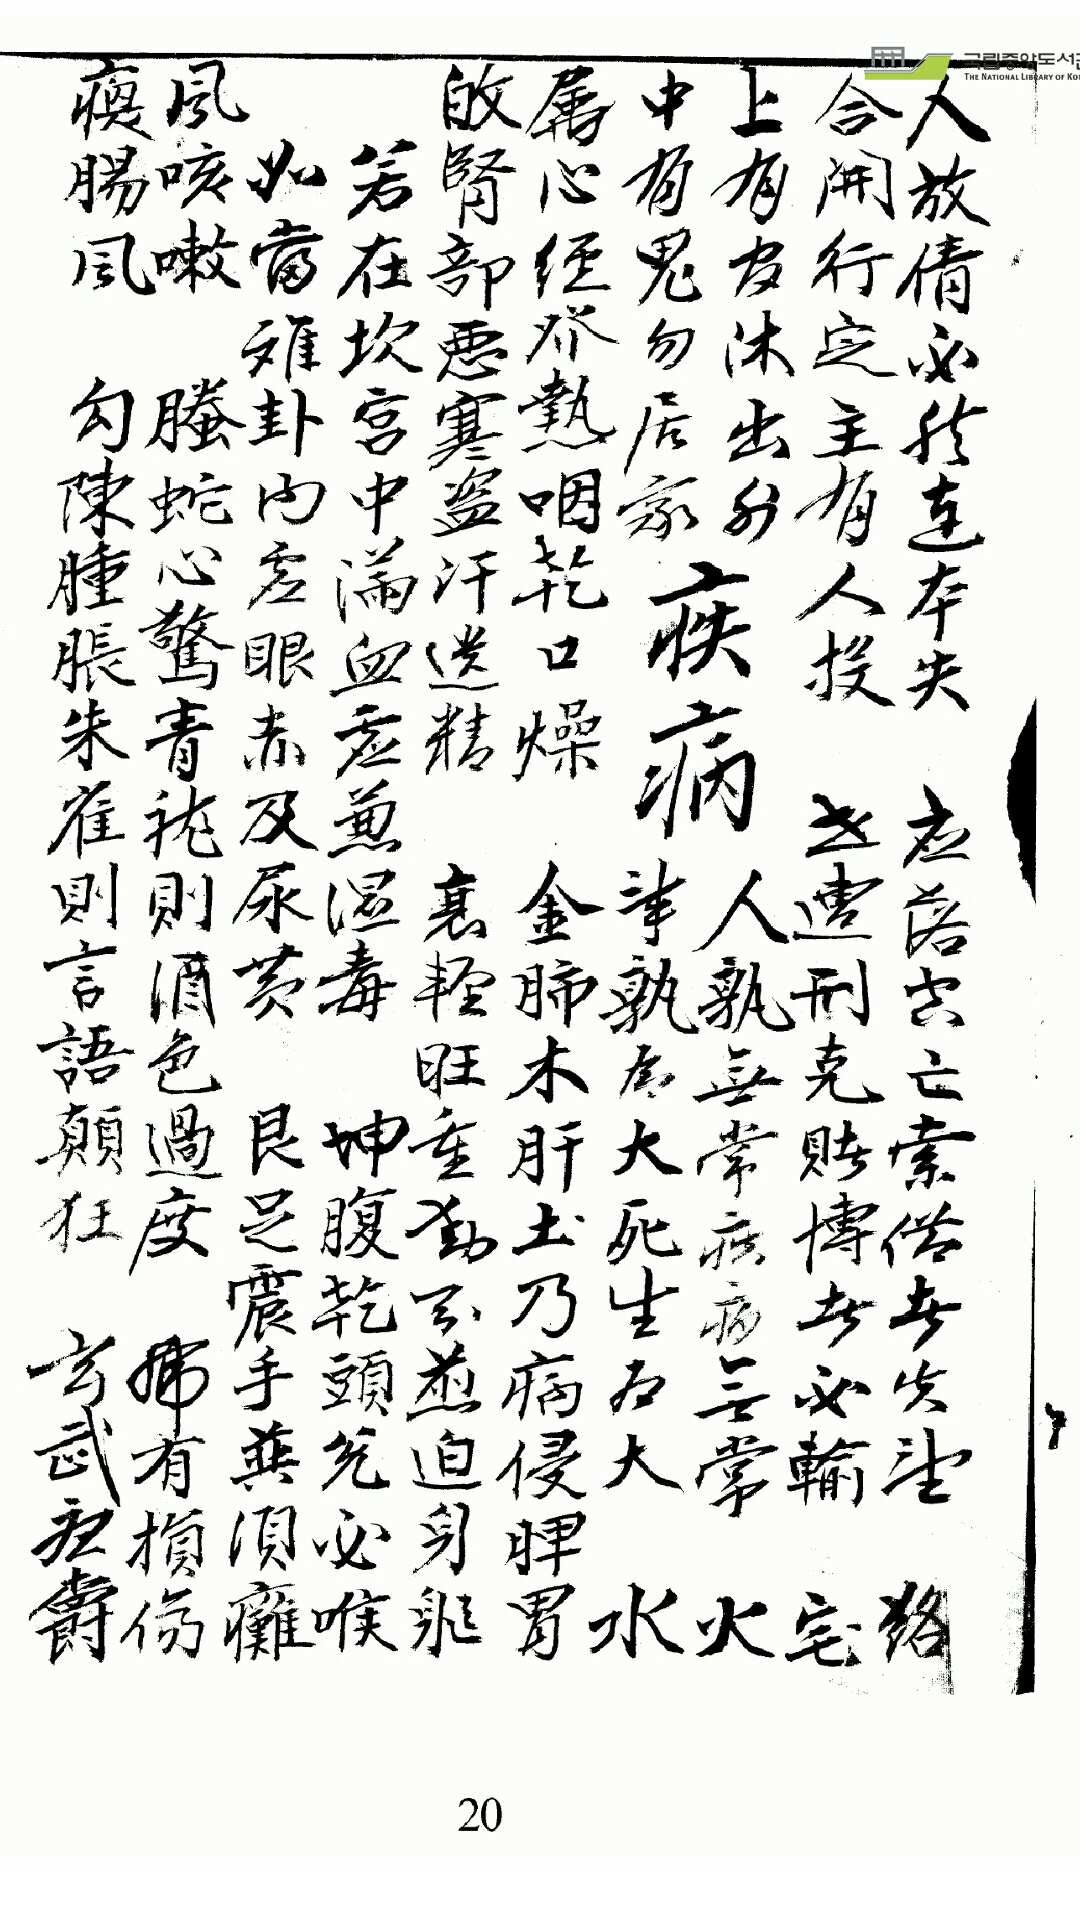 人放債必然連本失 應落空亡索借者失望 貉
合開行定主有人投 世遭刑克賭博者必輸 宅
上有官休出外 人孰無常疾病無常 火
中有鬼勿居家 疾病 事孰爲大死生爲大 水
屬心經疥熱咽乾口燥 金肺木肝土乃病侵脾胃
故腎部惡寒盜汗遺精 衰輕旺重動不煎迫身
若在坎宮中滿血虛兼濕毒 坤腹乾頭兌必喉
如當離卦內虛眼赤及尿黃 艮足震手巽須癱
風咳嗽 螣蛇心驚青龍則酒色過度 虎有損傷
瘓腸風 勾陳腫脹朱雀則言語顛狂 玄武在
20
국립중앙도서관
THE NATIONAL LIBRARY OF KOR